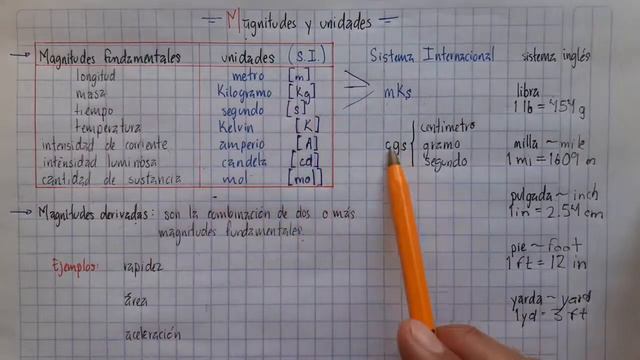 = Magnitudes y unidades =
→ Magnitudes fundamentales unidades (S.I.)
longitud metro [m]
masa Kilogramo [Kg]
tiempo segundo [s]
temperatura Kelvin [K]
intensidad de corriente amperio [A]
intensidad luminosa candela [cd]
cantidad de sustancia mol [mol]
Sistema Internacional
mKs
cgs { centimetro
gramo
segundo
sistema inglés
libra
1 lb = 454 g
milla ~ mile
1 mi = 1609 m
pulgada ~ inch
1 in = 2.54 cm
pie ~ foot
1 ft = 12 in
yarda ~ yard
1 yd = 3 ft
→ Magnitudes derivadas: son la combinación de dos o más
magnitudes fundamentales.
Ejemplos: rapidez
área
aceleración